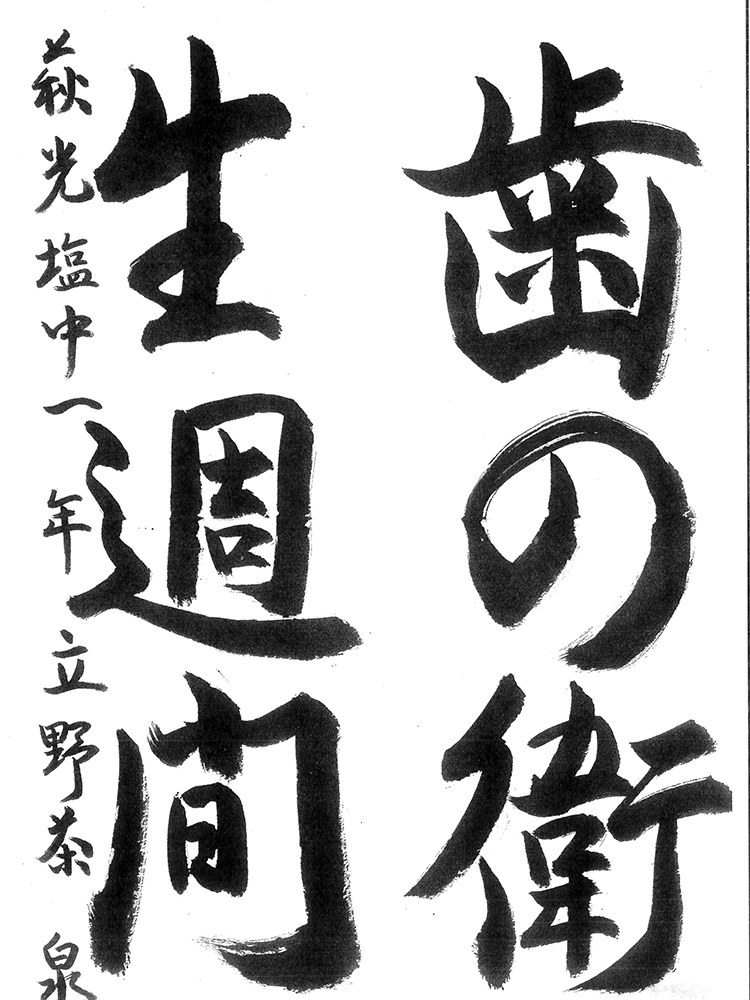 歯の衛
生週間
萩光塩中一年 立野茶 泉